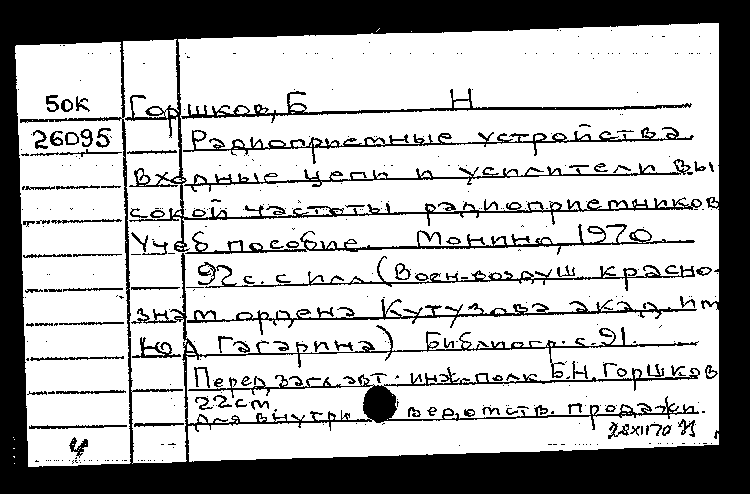 50к Горшков, Б Н
26095 Радиоприемные устройства.
Входные цепи и усилители вы
сокой частоты радиоприемников
Учеб. пособие. Монино, 1970.
92 с. с илл. (Воен-воздуш красно-
знам ордена Кутузова акад. им
Ю А Гагарина) Библиогр. с. 91.
Перед загл. авт. инж-полк Б.Н. Горшков
22 см.
Для внутри ведомств. продажи.
4